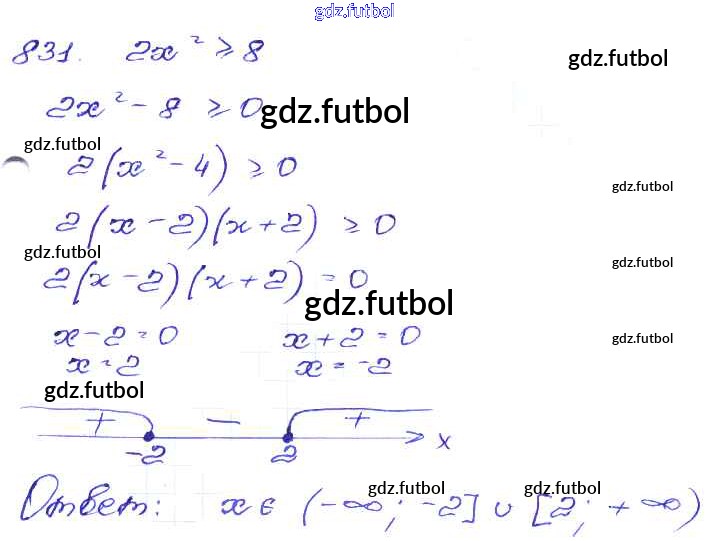 gdz.futbol
831. 2x² ≥ 8
gdz.futbol
2x² - 8 ≥ 0
gdz.futbol
gdz.futbol
2(x² - 4) ≥ 0
gdz.futbol
2(x - 2)(x + 2) ≥ 0
gdz.futbol
gdz.futbol
2(x - 2)(x + 2) = 0
gdz.futbol
x - 2 = 0 x + 2 = 0
gdz.futbol
x = 2 x = -2
gdz.futbol
+ - +
-2 2 x
gdz.futbol gdz.futbol
Ответ: x ∈ (-∞; -2] ∪ [2; +∞)